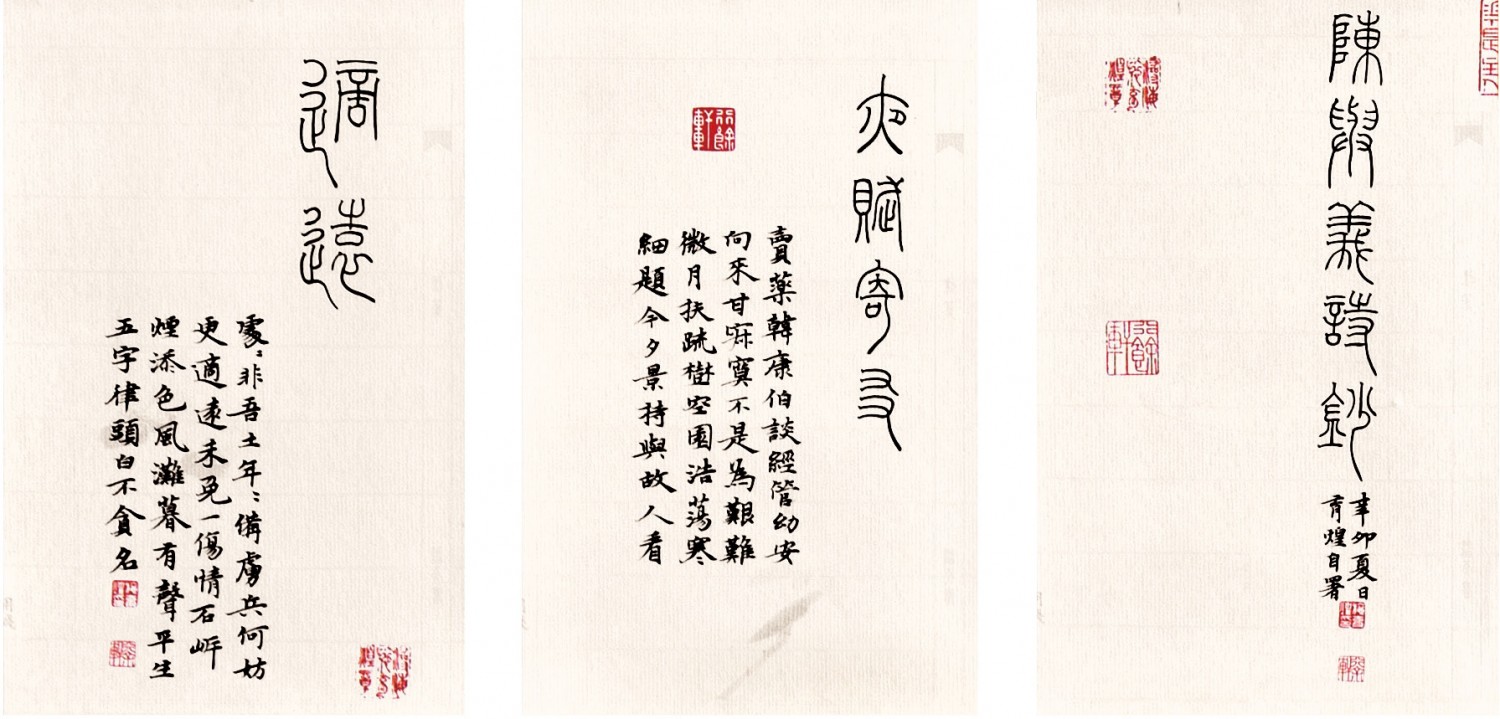 陳與義詩鈔
辛卯夏日
育煌自署
夜賦寄友
賣藥韓康伯談經管幼安
向來甘寂寞不是為艱難
微月扶疏樹空園浩蕩寒
細題今夕景持與故人看
適遠
處〻非吾土年〻備虜兵何妨
更適遠未免一傷情石岸
煙添色風灘暮有聲平生
五字律頭白不貪名